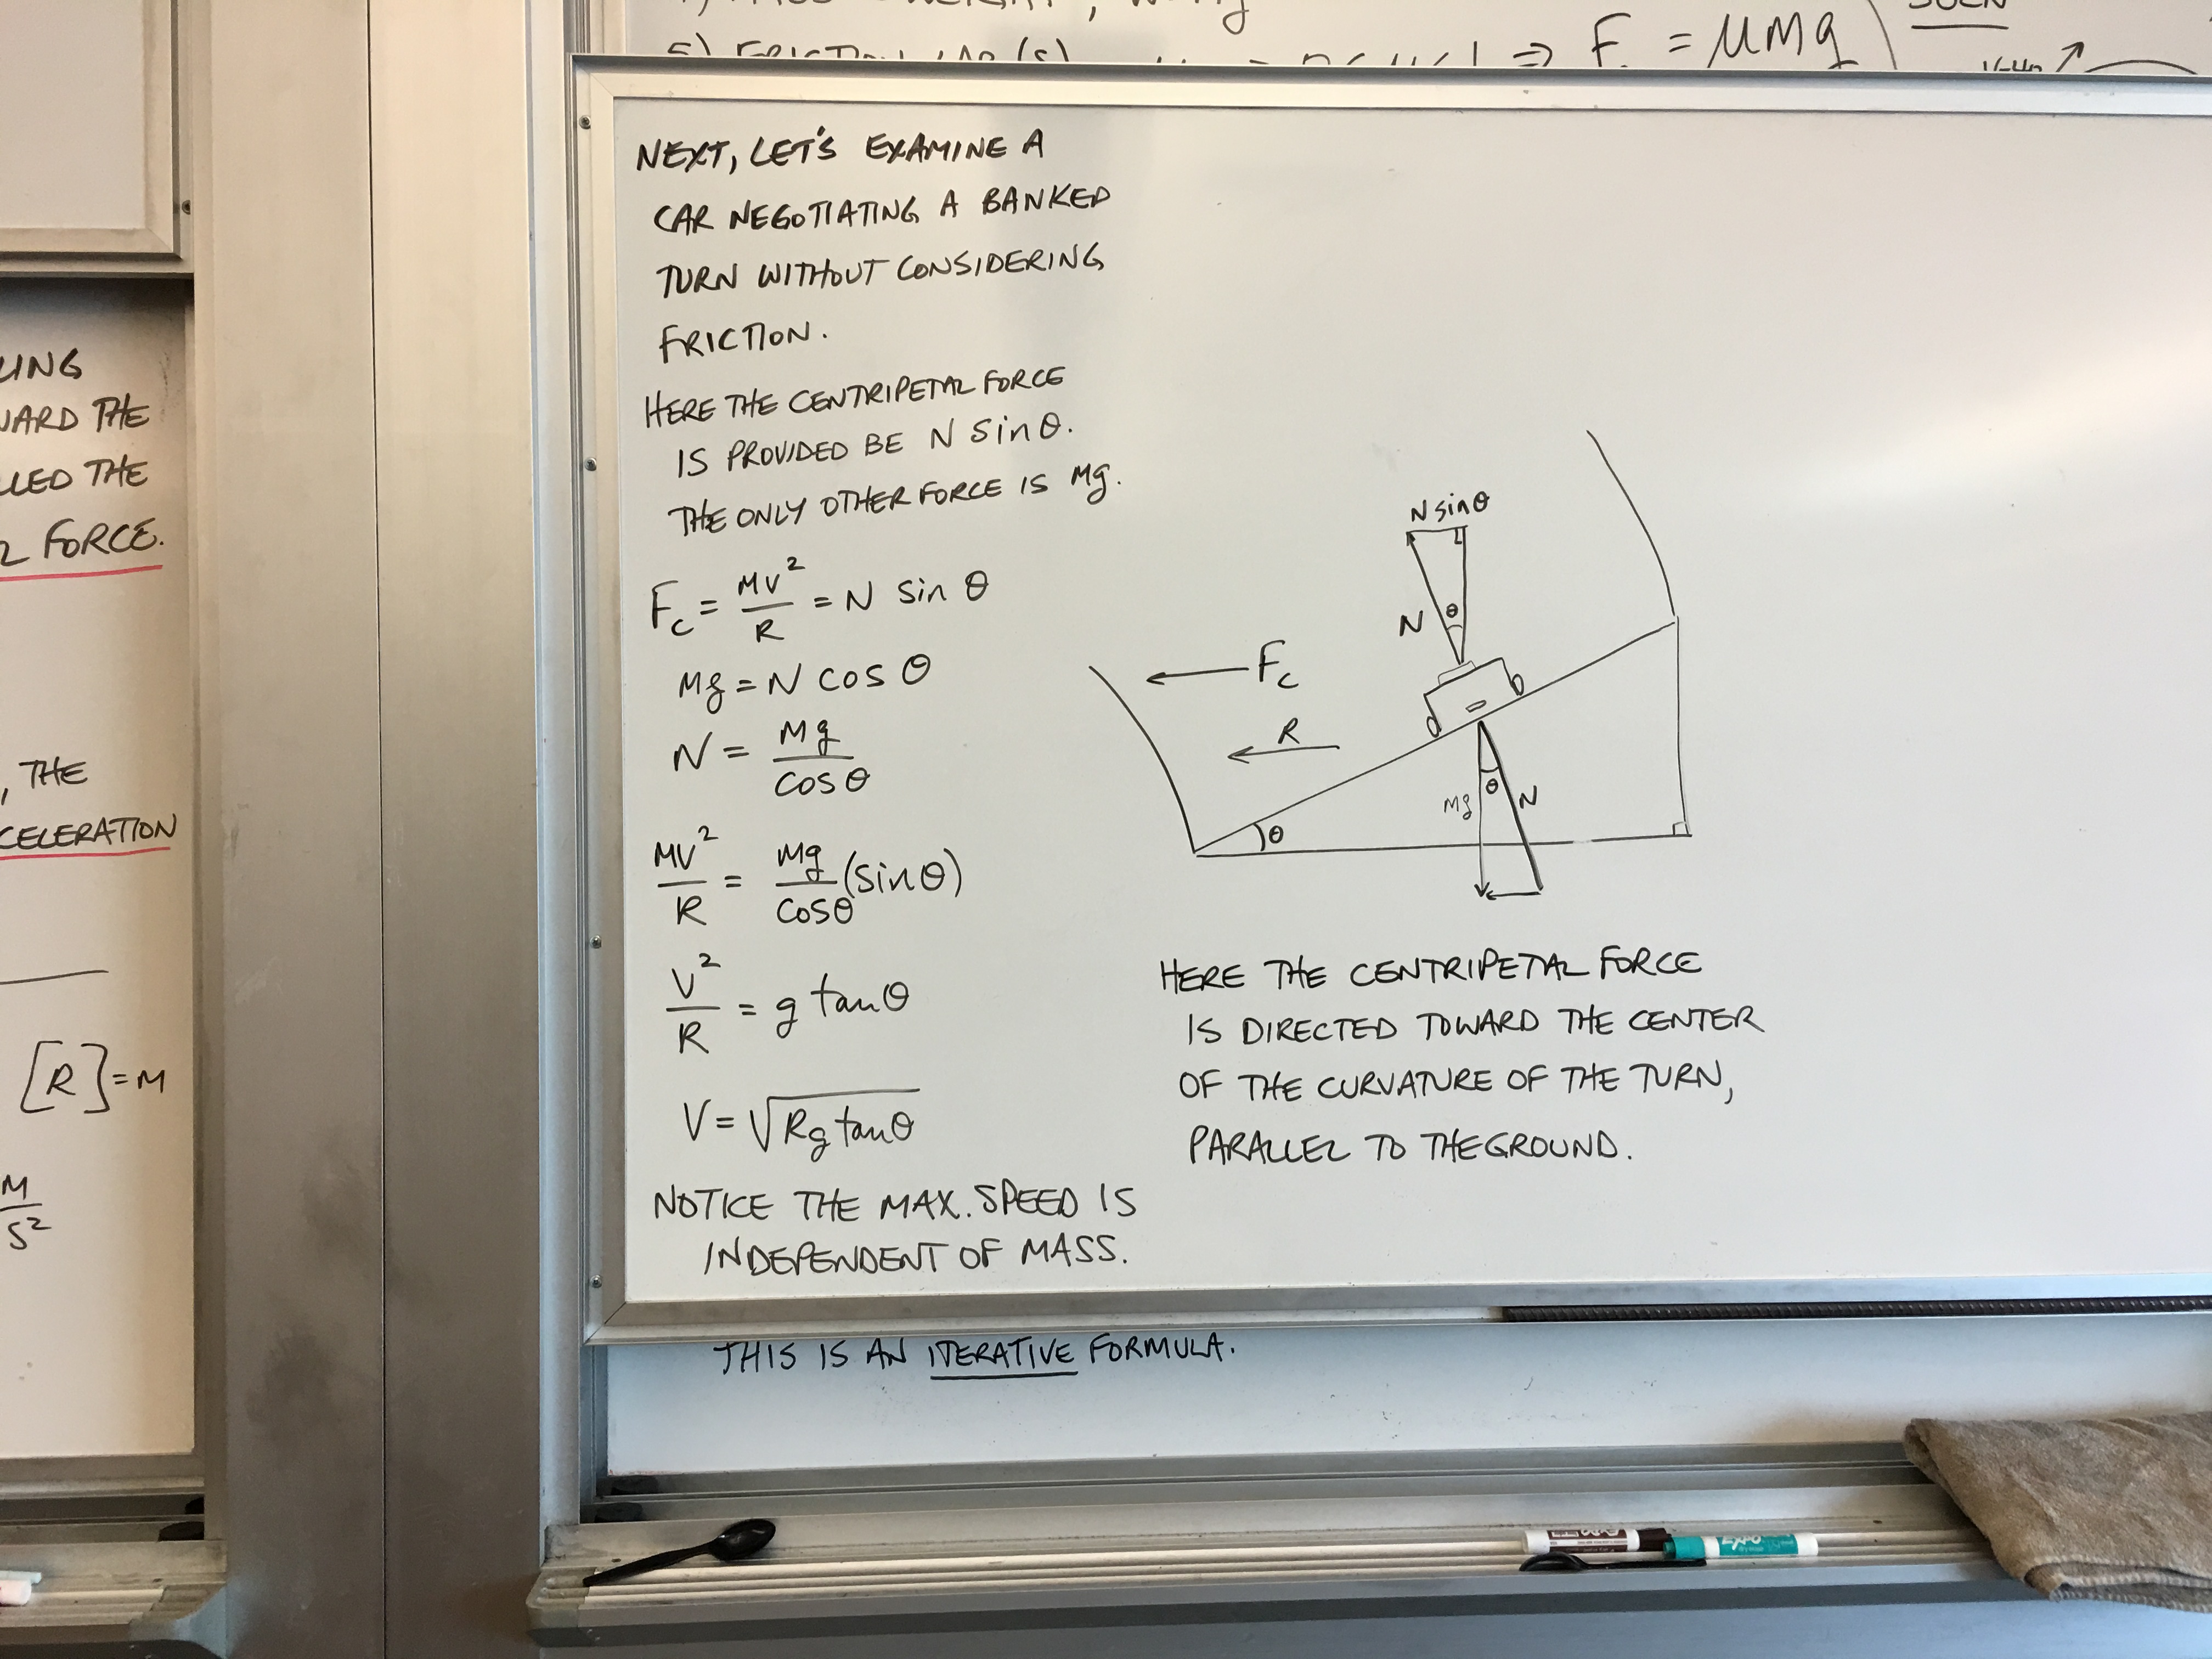 F = μMg
5) FRICTION
LING
WARD THE
LLED THE
FORCE.
, THE
CELERATION
[R] = M
M
S²
NEXT, LET'S EXAMINE A
CAR NEGOTIATING A BANKED
TURN WITHOUT CONSIDERING
FRICTION.
HERE THE CENTRIPETAL FORCE
IS PROVIDED BE N sin θ.
THE ONLY OTHER FORCE IS Mg.
F_c = MV²/R = N sin θ
Mg = N cos θ
N = Mg/cos θ
MV²/R = Mg/cos θ (sin θ)
V²/R = g tan θ
V = √Rg tan θ
NOTICE THE MAX. SPEED IS
INDEPENDENT OF MASS.
N sin θ
N θ
F_c
R
Mg θ N
θ
HERE THE CENTRIPETAL FORCE
IS DIRECTED TOWARD THE CENTER
OF THE CURVATURE OF THE TURN,
PARALLEL TO THE GROUND.
THIS IS AN ITERATIVE FORMULA.
EXPO